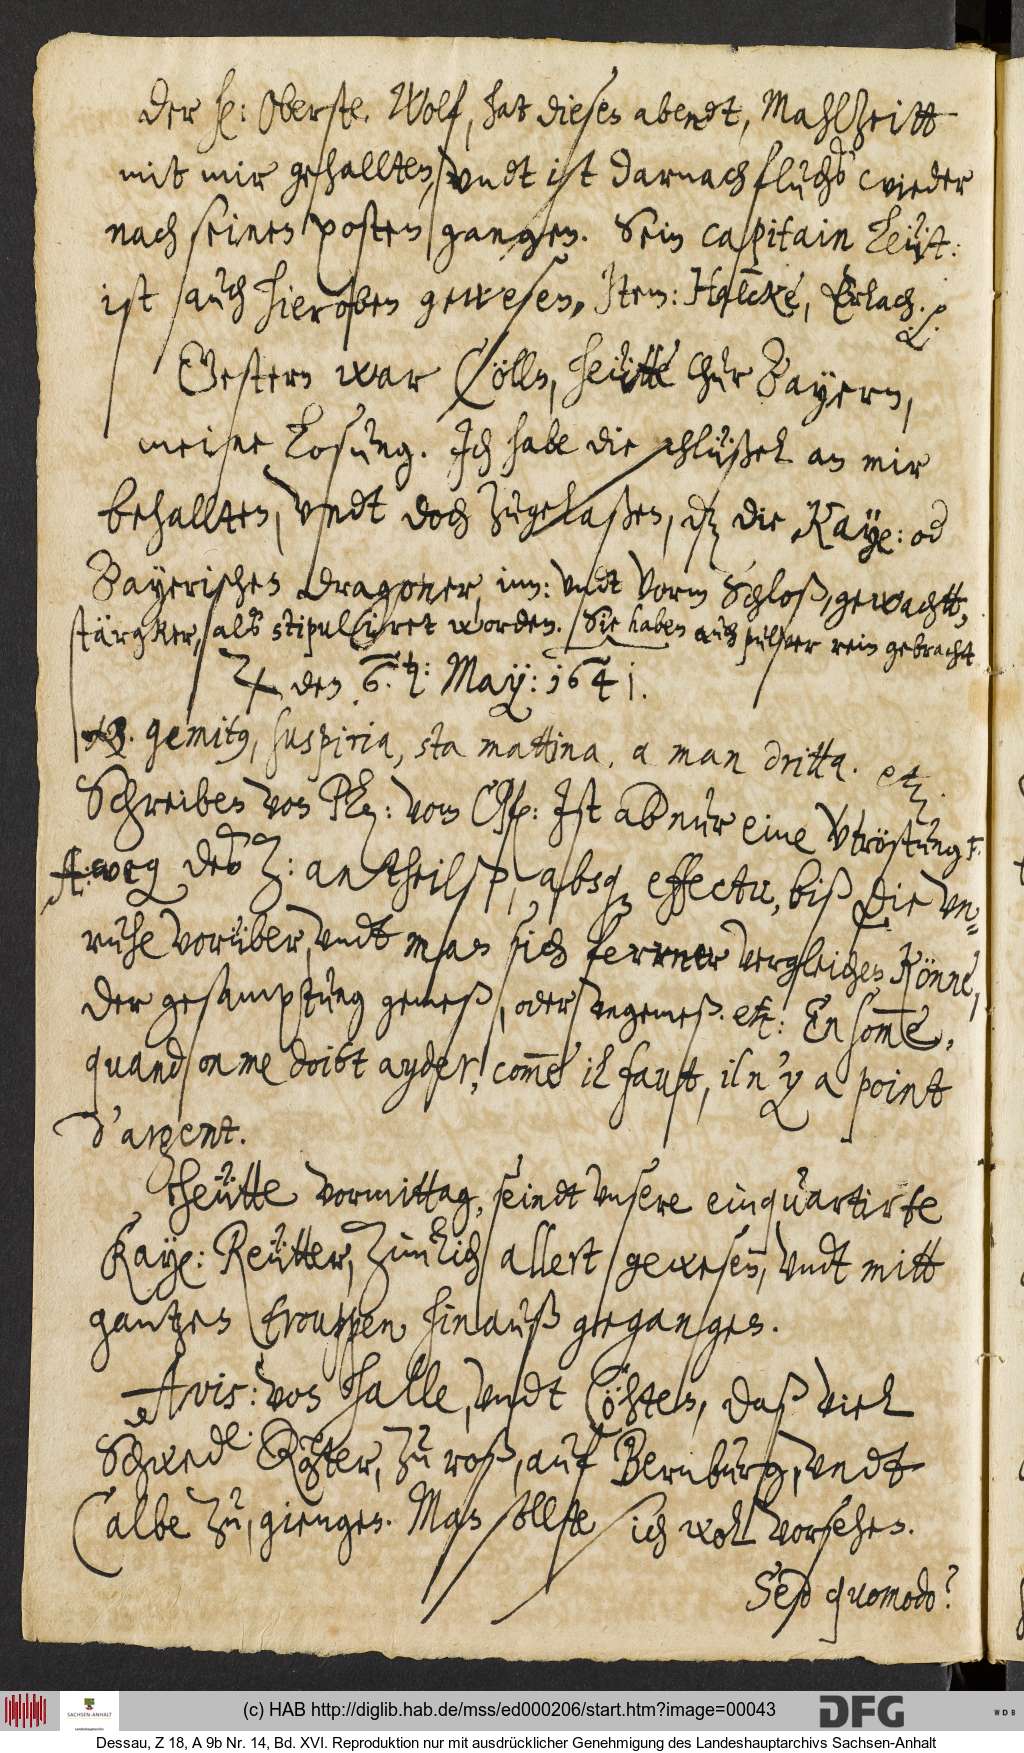 Der h: Oberste. Wolf, hat dieses abendt, Mahlzeitt
mit mir gehallten, vndt ist darnach flugs wieder
nach seinen posten gangen. Sein capitain Leüt:
ist auch hieroben gewesen, Item: Halcke, Erlach. p
Gestern war Cölln, heütte Chur Bayern,
meine Losung. Ich habe die schlüßel an mir
behallten, vndt doch zugelaßen, dz die Kay: od
Bayerischen dragoner, inn: vndt vorm Schloß, gewachtt,
stärgker, als stipuliret worden. Sie haben auch pulver rein gebracht
den 6. t: May: 1641.
gemitg, suspiria, sta mattina, a man dritta. etz
Schreiben von : vom : Ist ab nur eine Vtröstung
weg des Z: antheilß, absq effectu, biß die vn=
ruhe vorüber, vndt man sich ferrner vergleichen könne,
der gesamptung gemeß, oder vngemeß. etz: En some,
quand on me doibt ayder, come il faut, il n'y a point
d'argent.
Heütte vormittag, seindt vnsere einquartirte
Kay: Reütter, zimlich allert gewesen, vndt mitt
gantzen trouppen hinauß gegangen.
Avis: von Halle, vndt Cöhten, daß viel
Schwed. Räuter, zu roß, auf Bernburg, vndt
Calbe zu, giengen. Man sollte sich wol vorsehen.
Sed quomodo?
(c) HAB http://diglib.hab.de/mss/ed000206/start.htm?image=00043
SACHSEN-ANHALT
DFG
WDB
Dessau, Z 18, A 9b Nr. 14, Bd. XVI. Reproduktion nur mit ausdrücklicher Genehmigung des Landeshauptarchivs Sachsen-Anhalt